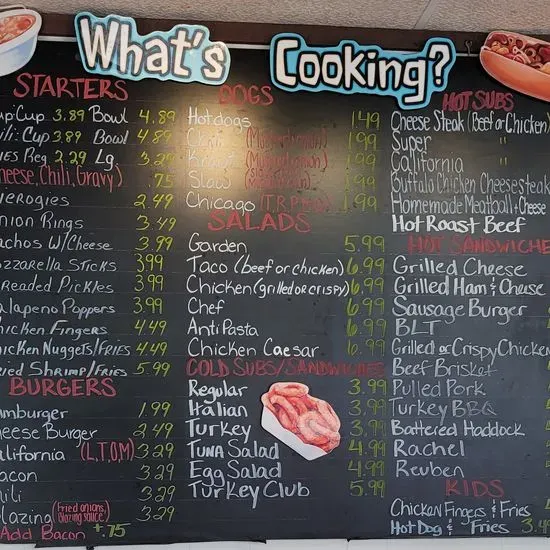 What's Cooking?
STARTERS
up: Cup 3.89 Bowl 4.89
ili: Cup 3.89 Bowl 4.89
ies Reg 2.29 Lg. 3.29
heese, Chili, Gravy) .75
ierogies 2.49
nion Rings 3.49
achos W/Cheese 3.99
ozzarella Sticks 3.99
readed Pickles 3.99
alapeno Poppers 3.99
hicken Fingers 4.49
hicken Nuggets/Fries 4.49
ried Shrimp/Fries 5.99
BURGERS
amburger 1.99
heese Burger 2.49
alifornia (L,T,O,M) 3.29
acon 3.29
hili 3.29
lazing (Fried onions, Blazing sauce) 3.29
Add Bacon +.75
DOGS
Hotdogs 1.49
Chili 1.99
Kraut 1.99
Slaw 1.99
Chicago 1.99
SALADS
Garden 5.99
Taco (beef or chicken) 6.99
Chicken (grilled or crispy) 6.99
Chef 6.99
AntiPasta 6.99
Chicken Caesar 6.99
COLD SUBS/SANDWICHES
Regular 3.99
Italian 3.99
Turkey 3.99
Tuna Salad 4.99
Egg Salad 4.99
Turkey Club 5.99
HOT SUBS
Cheese Steak (Beef or Chicken)
Super "
California "
Buffalo Chicken Cheesesteak
Homemade Meatball + Cheese
Hot Roast Beef
HOT SANDWICHE
Grilled Cheese
Grilled Ham & Cheese
Sausage Burger
BLT
Grilled or Crispy Chicken
Beef Brisket
Pulled Pork
Turkey BBQ
Battered Haddock
Rachel
Reuben
KIDS
Chicken Fingers & Fries
Hot Dog & Fries 3.4